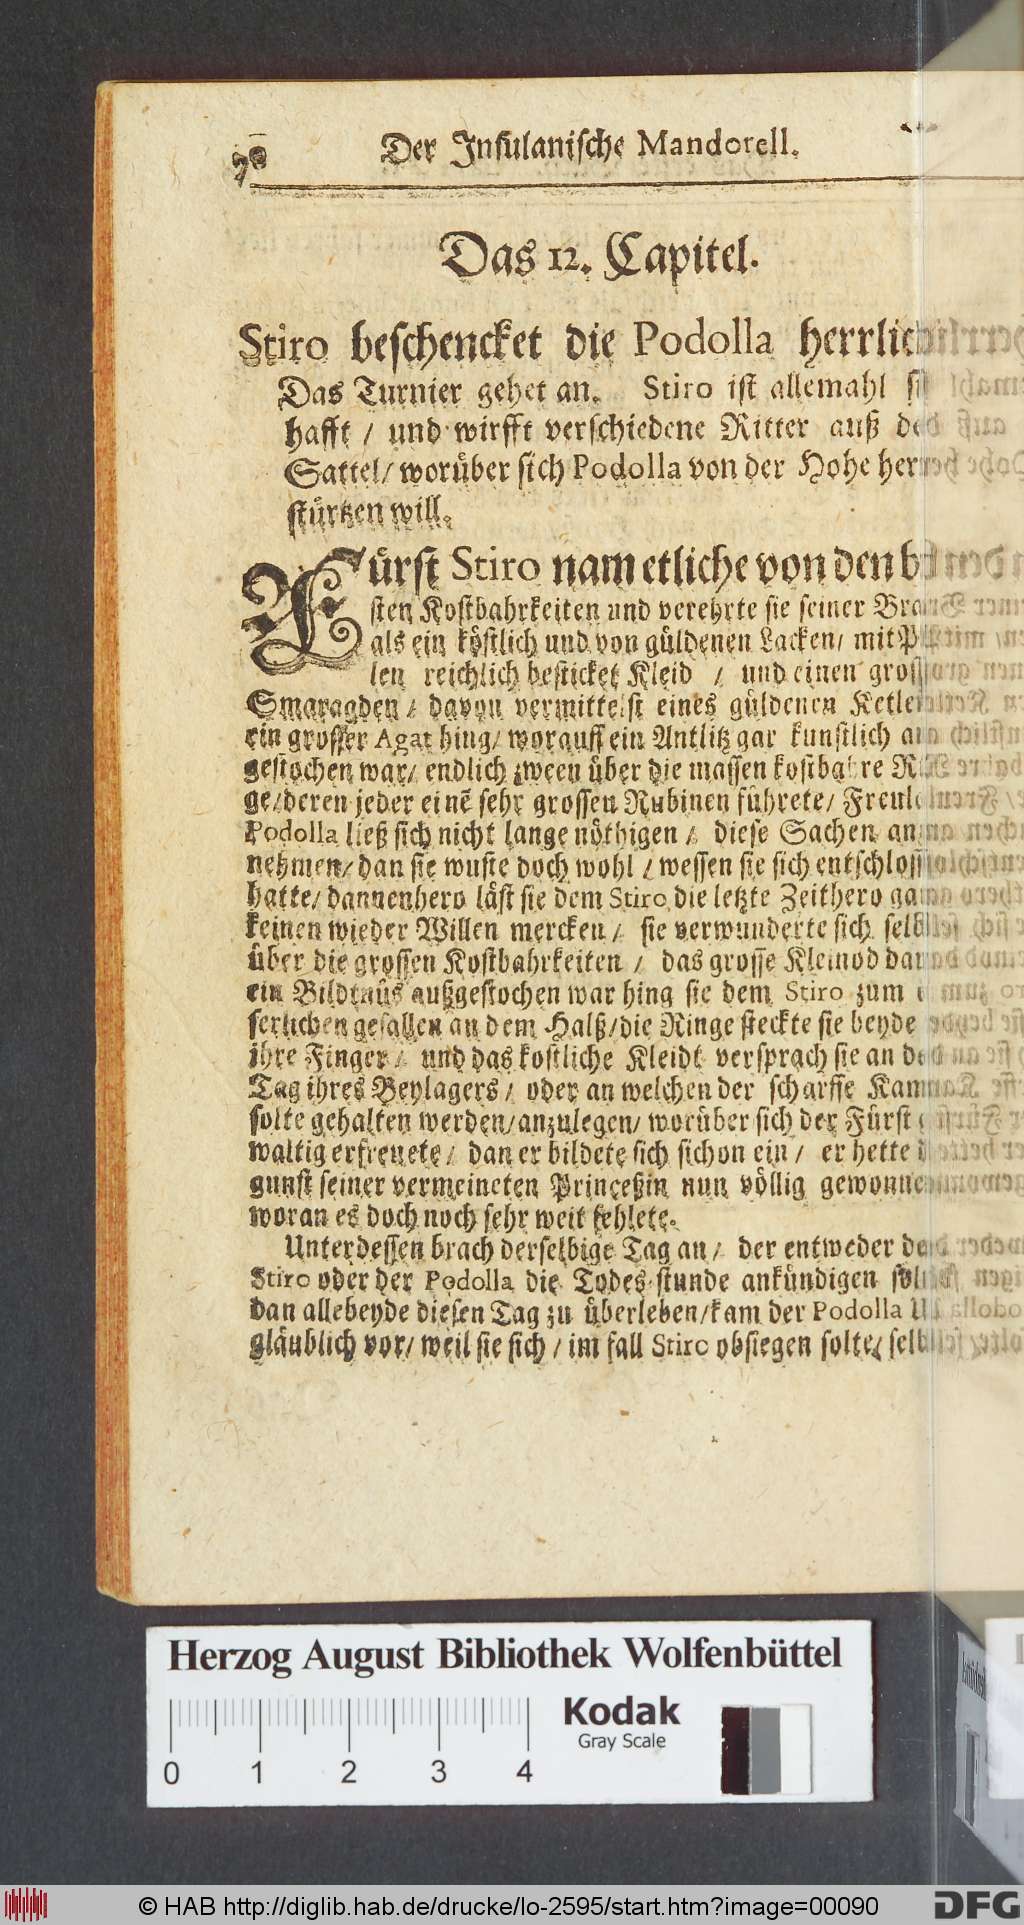 78
Der Insulanische Mandorell.
Das 12. Capitel.
Stiro beschencket die Podolla herrlich
Das Turnier gehet an. Stiro ist allemahl
hafft / und wirfft verschiedene Ritter auß
Sattel/ worüber sich Podolla von der Hohe
stürtzen will.
Fürst Stiro nam etliche von den
sten Kostbahrkeiten und verehrte sie seiner
als ein köstlich und von güldenen Lacken/ mit
len reichlich besticket Kleid / und einen
Smaragden / davon vermittelst eines güldenen
ein grosser Agat hing/ worauff ein Antlitz gar kunstlich
gestochen war/ endlich zween über die massen kostbahre
ge/deren jeder einē sehr grossen Rubinen führete/
Podolla ließ sich nicht lange nöthigen / diese Sachen
nehmen/ dan sie wuste doch wohl / wessen sie sich
hatte/ dannenhero läst sie dem Stiro die letzte Zeithero
keinen wieder Willen mercken / sie verwunderte sich
über die grossen Kostbahrkeiten / das grosse Kleinod
ein Bildnüs außgestochen war hing sie dem Stiro zum
serlichen gefallen an dem Halß/die Ringe steckte sie beyde
ihre Finger / und das kostliche Kleidt versprach sie an
Tag ihres Beylagers / oder an welchen der scharffe
solte gehalten werden/anzulegen/ worüber sich der Fürst
waltig erfreuete / dan er bildete sich sichon ein / er hette
gunst seiner vermeineten Princeßin nun völlig
woran es doch noch sehr weit fehlete.
Unterdessen brach derselbige Tag an / der entweder
Stiro oder der Podolla die Todes stunde ankündigen
dan allebeyde diesen Tag zu überleben/kam der Podolla
gläublich vor/ weil sie sich / im fall Stiro obsiegen solte/
Herzog August Bibliothek Wolfenbüttel
Kodak
Gray Scale
0 1 2 3 4
© HAB http://diglib.hab.de/drucke/lo-2595/start.htm?image=00090
DFG